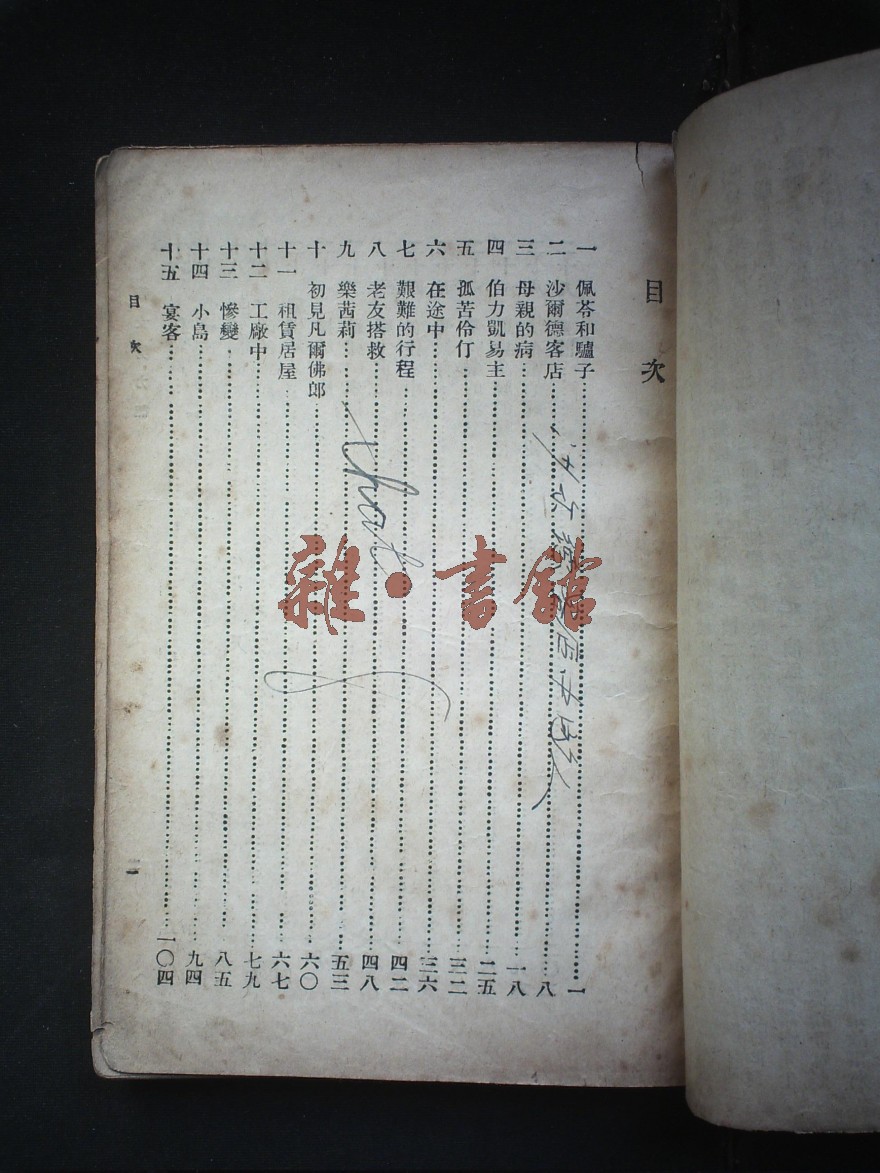 目次
一 佩芩和驢子…………一
二 沙爾德客店…………八
三 母親的病…………一八
四 伯力凱易主…………二五
五 孤苦伶仃…………三二
六 在途中…………三六
七 艱難的行程…………四二
八 老友搭救…………四八
九 樂茜莉…………五三
十 初見凡爾佛郎…………六〇
十一 租賃居屋…………六七
十二 工廠中…………七九
十三 慘變…………八五
十四 小島…………九四
十五 宴客…………一〇四
目次
一
that
雜·書館